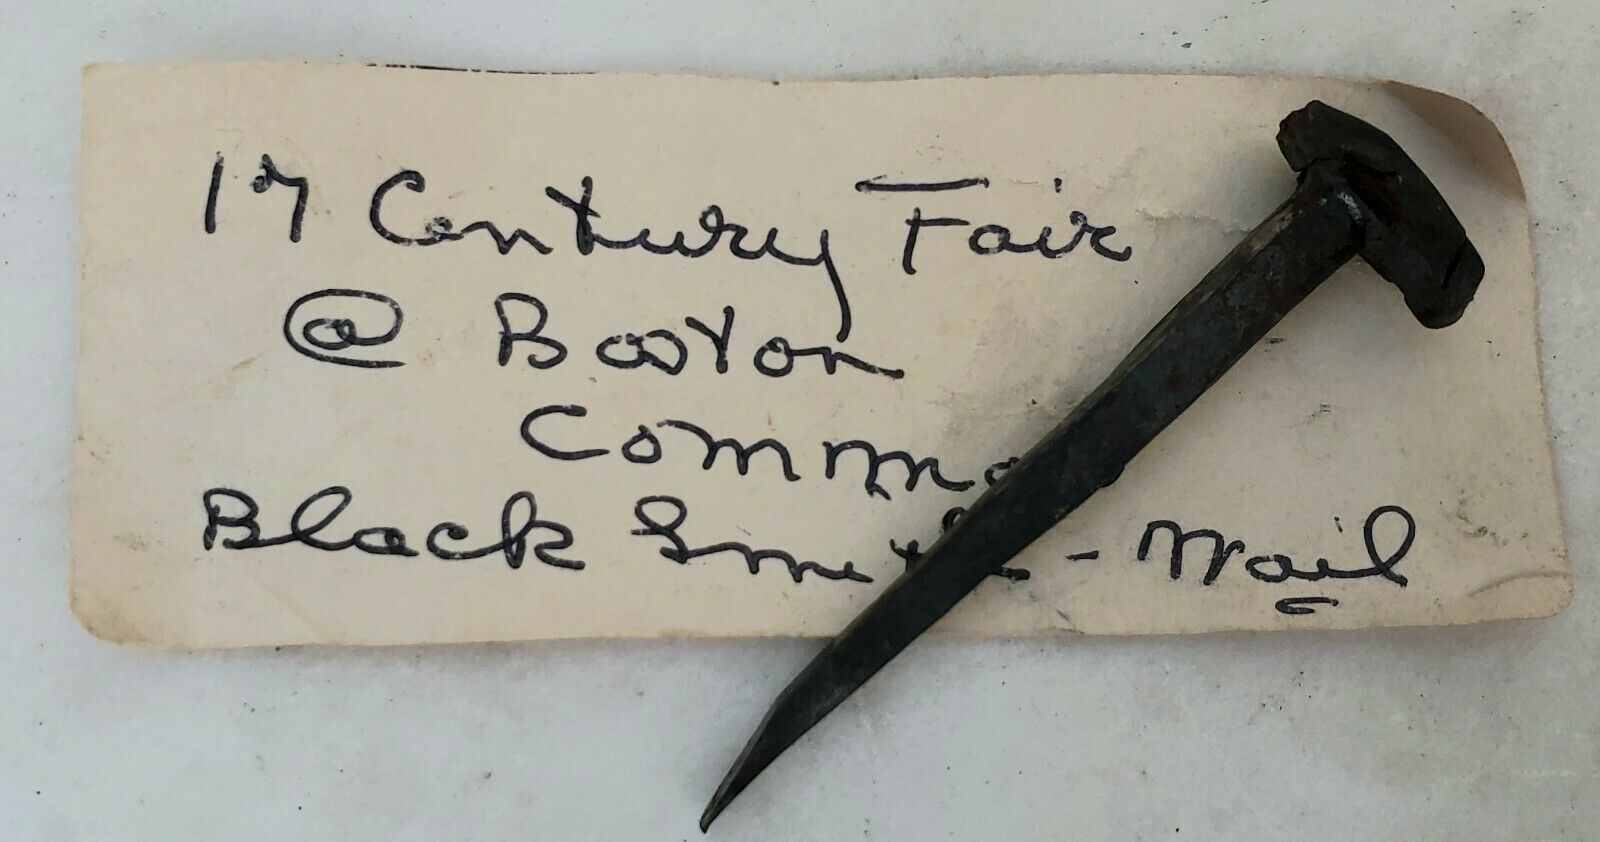 17 Century Fair
@ Boston
Common
Black Smith - Nail